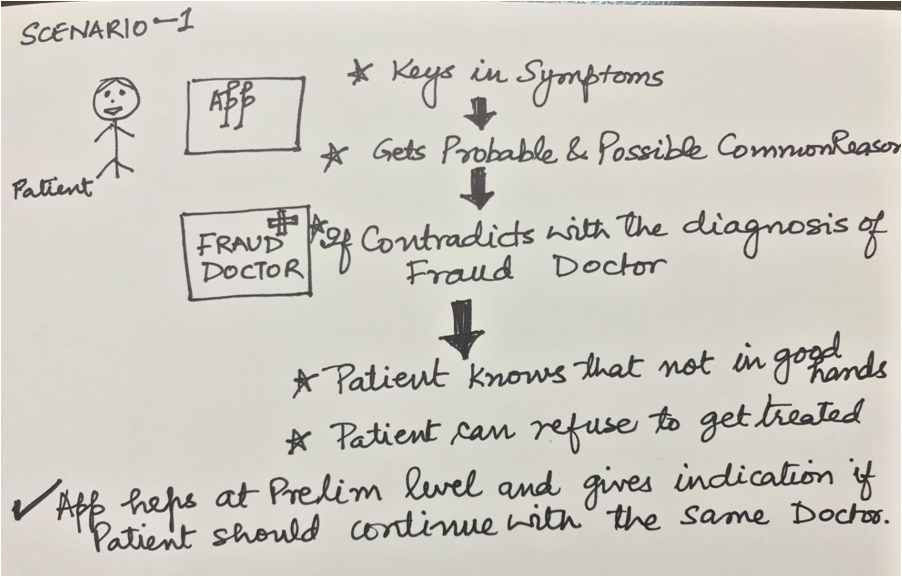 SCENARIO-1
App
* Keys in Symptoms
* Gets Probable & Possible Common Reason
Patient
FRAUD
DOCTOR
* If Contradicts with the diagnosis of
Fraud Doctor
* Patient knows that not in good
hands
* Patient can refuse to get treated
✓ App heps at Prelim level and gives indication if
Patient should continue with the same Doctor.